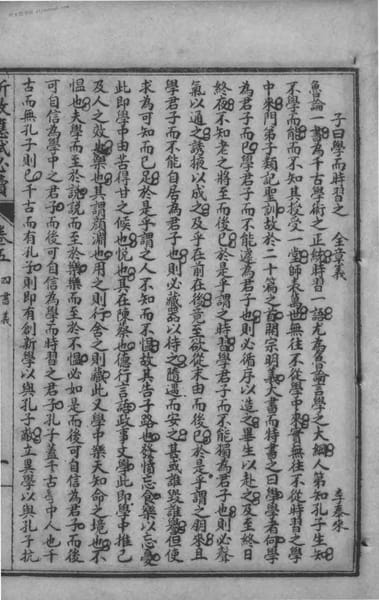 子曰學而時習之　全章義
李泰來
魯論一書為千古學術之正統時習一語尤為魯論言學之大綱人第知孔子生知
不學而能而不知其授受一堂師未嘗也無往不從學中來實無往不從時習之學
中來門弟子類記聖訓故於二十篇之首開宗明義大書而特書之曰學學者何學
為君子而已學君子而不能遽為君子也則必循序以造之畢生以赴之及至終日
終夜不知老之將至而後已於是乎謂之時習學君子而不能獨為君子也則必聲
氣以通之誘掖以成之及乎在前在後竟至欲從末由而後已於是乎謂之朋來且
學君子而不能自居為君子也則必藏器以待之隨遇而安之甚或誰毀誰譽但使
求為可知而已足於是乎謂之人不知而不慍故其告子路也發憤忘食樂以忘憂
此即學中由苦得甘之候也悅也其在陳蔡也德行言語政事文學此即學中推己
及人之效也樂也其謂顏淵也用之則行舍之則藏此又學中樂天知命之境也不
慍也夫學而至於說說而至於樂樂而至於不慍必如是而後可自信為君子而後
可自信為學中之君子而後可自信為學而時習之君子孔子蓋千古學中人也千
古而無孔子則已千古而有孔子則即有創新學以與孔子敵立異學以與孔子抗
新政應試必讀
卷五
四書義